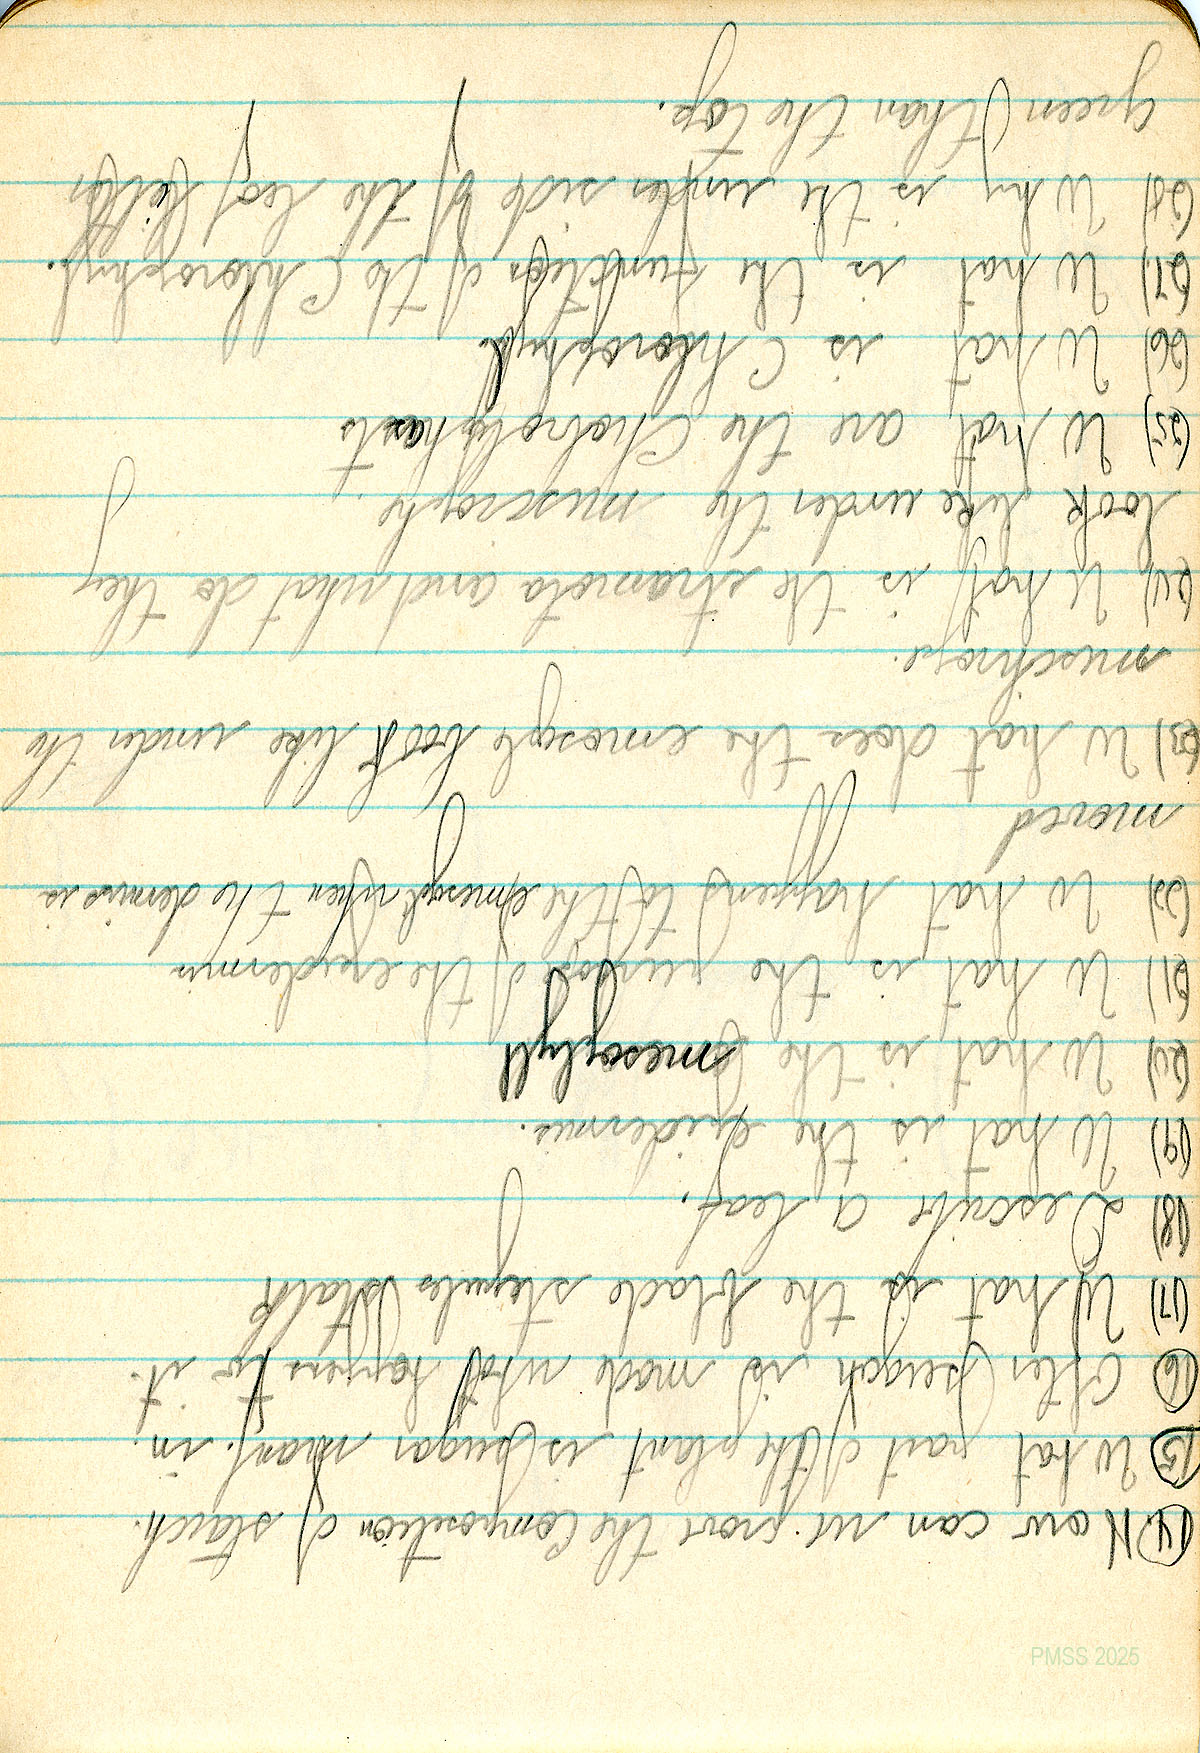 (14) How can we prove the Composition of starch.
(15) What part of the plant is sugar manf. in.
(16) After serach is made what happens to it.
(17) What is the blade stepules stalk
(18) Describe a leaf.
(19) What is the epidermis.
(20) What is the mesophyll
(21) What is the purpose of the epidermis
(22) What happens to the mesophyl when the dermis is
moved
(23) What does the emosyle look like under the
muschrope.
(24) What is the stramota and what do they
look like under the muscrophe.
(25) What are the Chorolphasts
(26) What is Chlorophyll
(27) What is the function of the Chlorophyl.
(28) Why is the under side of the leaf lighter
green than the top.
PMSS 2025